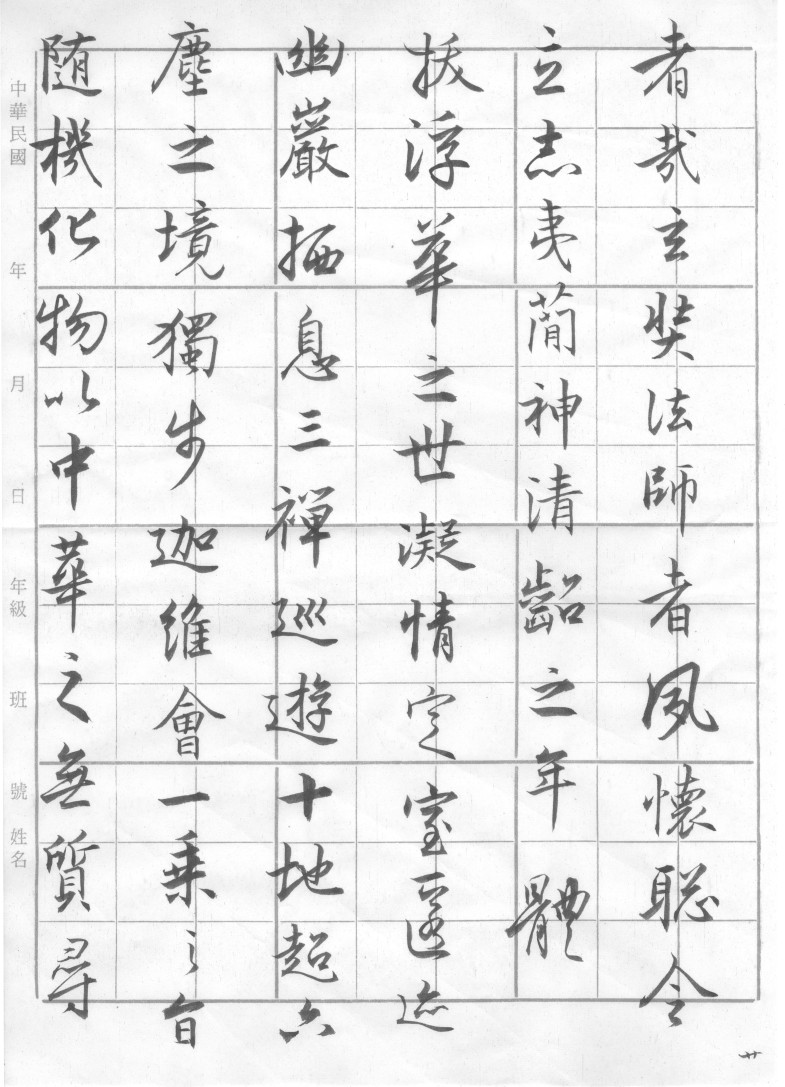 者哉玄奘法師者夙懷聡令
立志夷蕳神清齠之年體
拔浮華之世凝情定室匿迹
幽巖栖息三禪巡遊十地超六
塵之境獨步迦維會一乗之旨
随機化物以中華之無質尋
中華民國 年 月 日 年級 班 號 姓名
廿